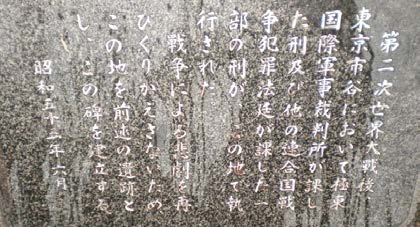 第二次世界大戦後、
東京市谷において極東
国際軍事裁判所が課し
た刑及び他の連合国戦
争犯罪法廷が課した一
部の刑が この地で執
行された。
戦争による悲劇を再
びくりかえさないため
この地を前述の遺跡と
し この碑を建立する
昭和五十三年六月